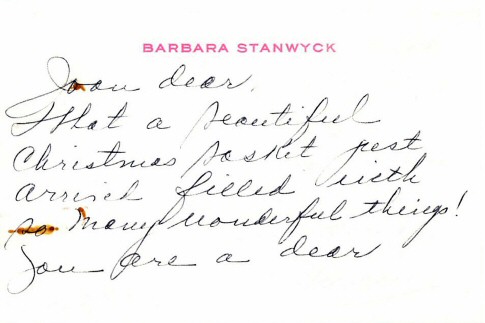 BARBARA STANWYCK
Joan dear,
What a beautiful
Christmas basket just
arrived filled with
so many wonderful things!
You are a dear